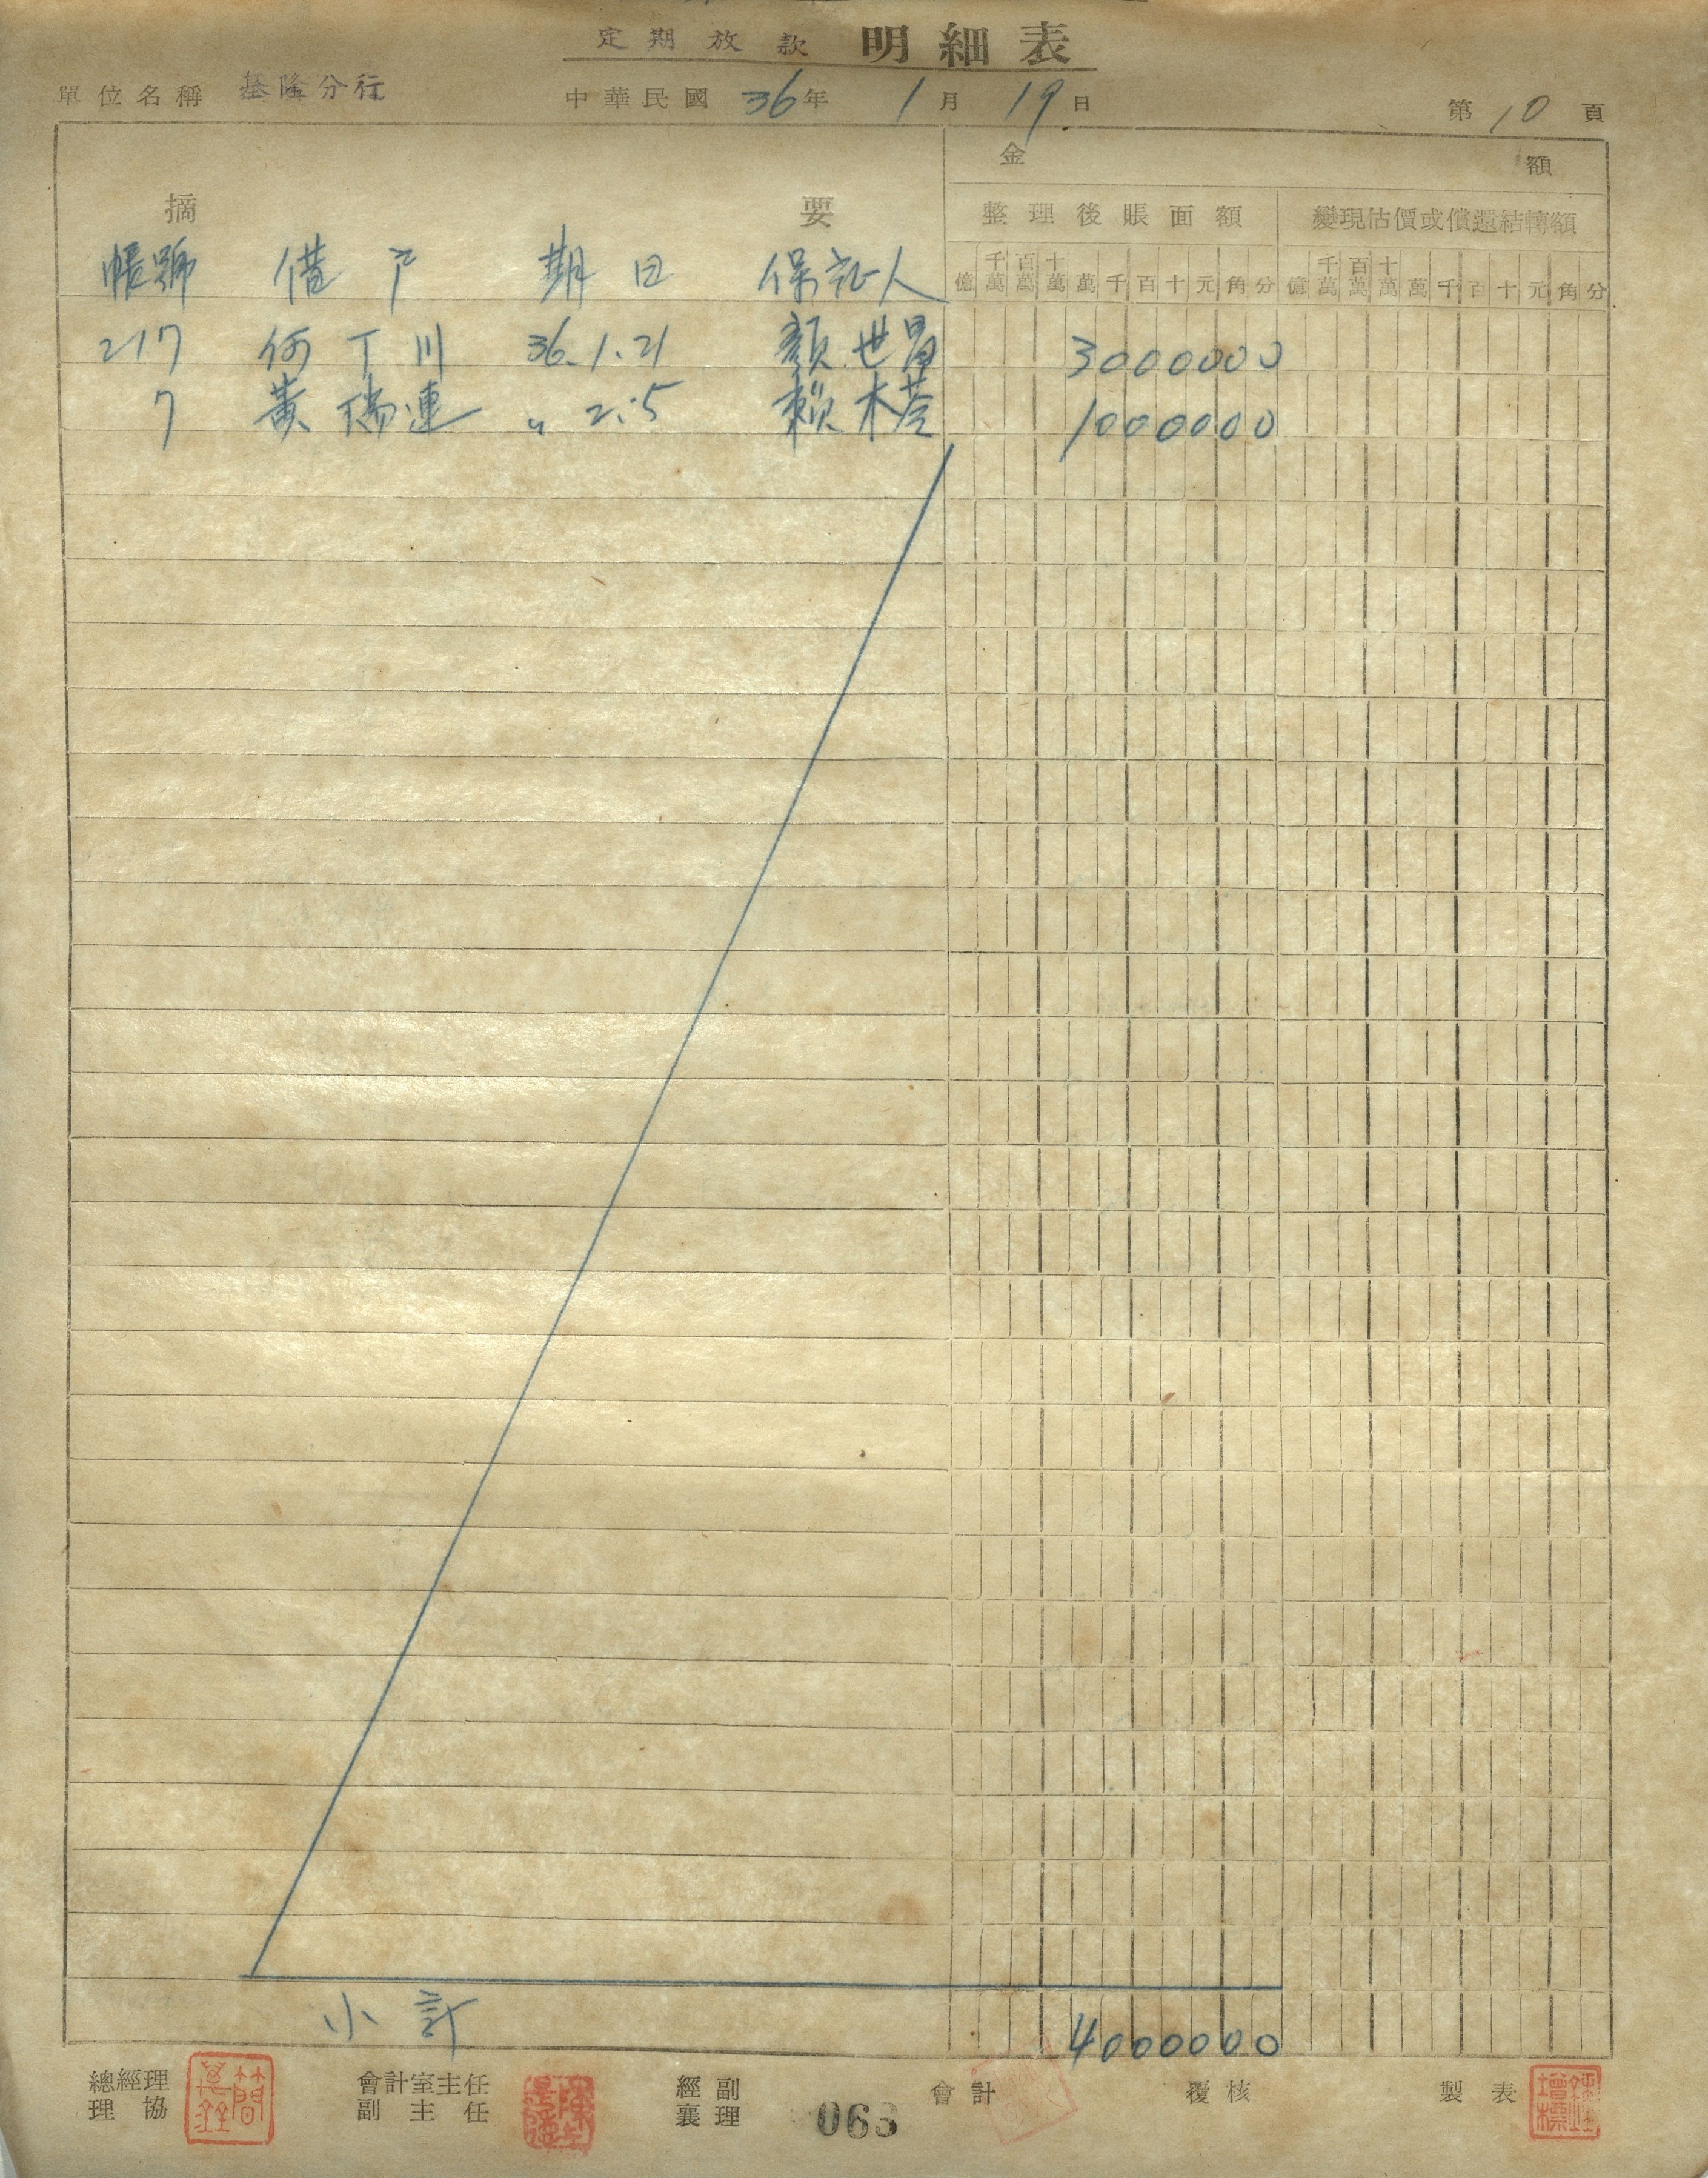 定期放款 明細表
單位名稱 基隆分行 中華民國 36年 1月 19日 第10頁
金 額
摘 要 整理後賬面額 變現估價或償還結轉額
帳號 借戶 期日 保証人 億 千萬 百萬 十萬 萬 千 百 十 元 角 分 億 千萬 百萬 十萬 萬 千 百 十 元 角 分
217 何丁川 36.1.21 顏世昌 3000000
7 黃瑞連 〃 2.5 賴木 1000000
小計 4000000
總經理 會計室主任 經副 會計 覆核 製表
協理 副主任 襄理
063